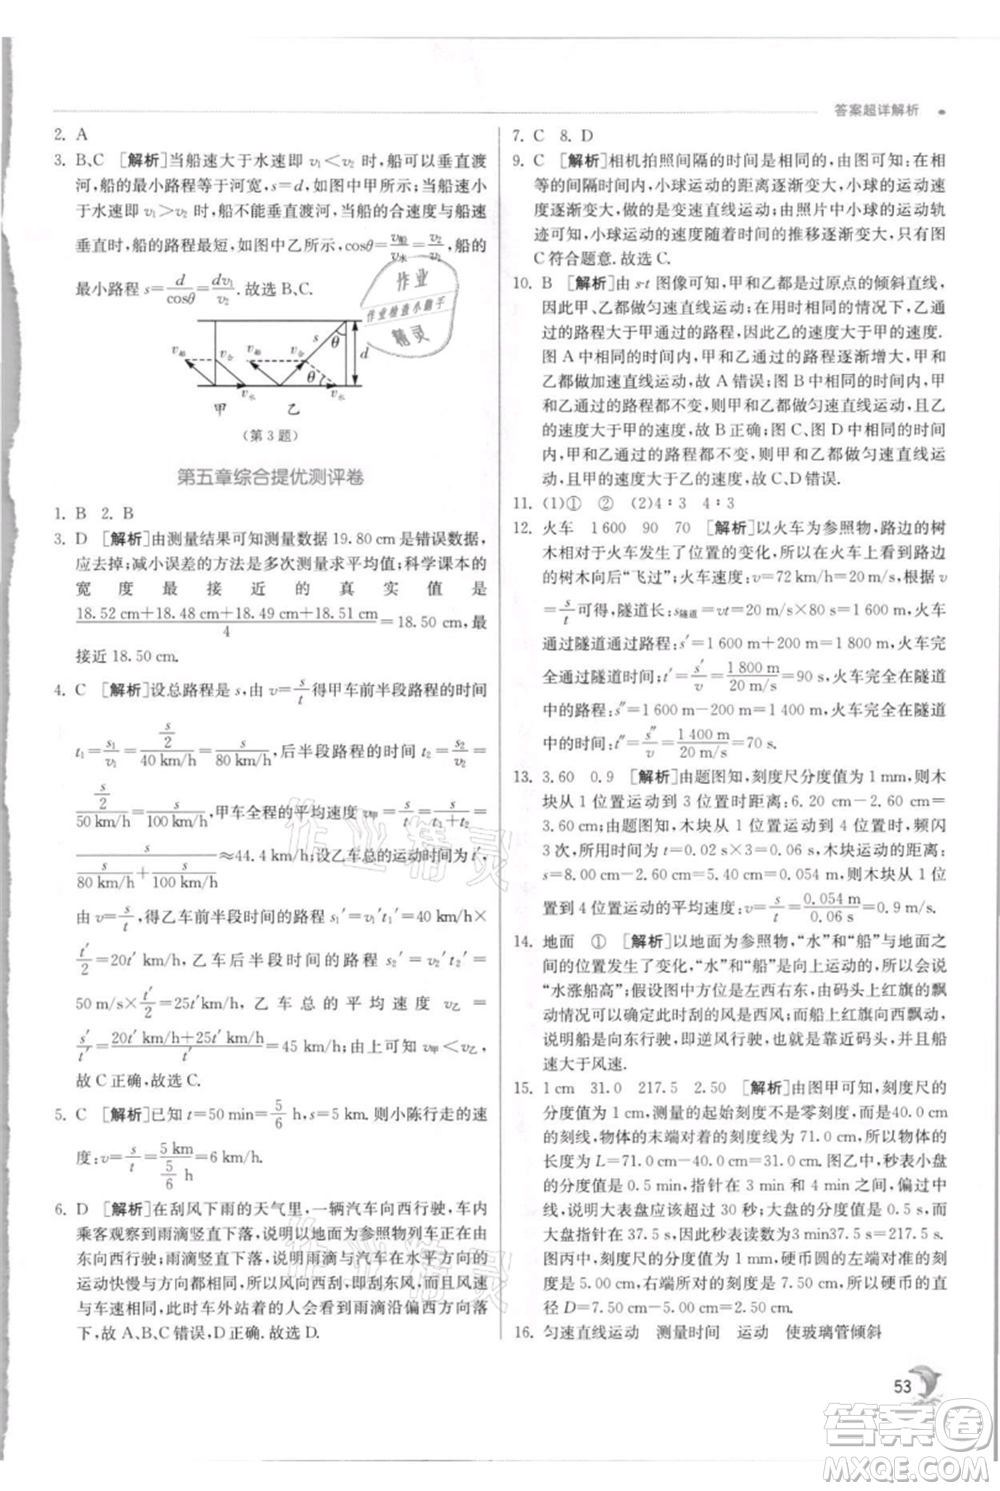 答案超详解析
2. A
3. B、C [解析]当船速大于水速即v₁＜v₂时，船可以垂直渡
河，船的最小路程等于河宽，s=d，如图中甲所示；当船速小
于水速即v₁＞v₂时，船不能垂直渡河，当船的合速度与船速
垂直时，船的路程最短，如图中乙所示，cosθ=v船/v水=v₂/v₁，船的
最小路程s=d/cosθ=dv₁/v₂. 故选B、C.
v船 v合 v船 v合 s θ d
θ
v水 v水
甲 乙
(第3题)
第五章综合提优测评卷
1. B 2. B
3. D [解析]由测量结果可知测量数据19.80 cm是错误数据，
应去掉；减小误差的方法是多次测量求平均值；科学课本的
宽度最接近的真实值是
(18.52 cm+18.48 cm+18.49 cm+18.51 cm)/4=18.50 cm，最
接近18.50 cm.
4. C [解析]设总路程是s，由v=s/t得甲车前半段路程的时间
t₁=s₁/v₁=(s/2)/(40 km/h)=s/(80 km/h)，后半段路程的时间t₂=s₂/v₂=
(s/2)/(50 km/h)=s/(100 km/h)，甲车全程的平均速度v甲=s/t=
s/(s/(80 km/h)+s/(100 km/h))≈44.4 km/h；设乙车总的运动时间为t′，
由v=s/t，得乙车前半段时间的路程s₁′=v₁′t₁′=40 km/h×
t′/2=20t′ km/h，乙车后半段时间的路程s₂′=v₂′t₂′=
50 m/s×t′/2=25t′km/h，乙车的平均速度v乙=
s′/t′=(20t′km/h+25t′km/h)/t′=45 km/h；由上可知v甲＜v乙，
故C正确，故选C.
5. C [解析]已知t=50 min=5/6 h，s=5 km，则小陈行走的速
度：v=s/t=5 km/(5/6 h)=6 km/h.
6. D [解析]在刮风下雨的天气里，一辆汽车向西行驶，车内
乘客观察到雨滴竖直下落，说明以地面为参照物列车正在
向西行驶；雨滴竖直下落，说明雨滴与汽车在水平方向上的
运动快慢与方向相同，由此得出外面向西刮东风，且风速
与车速相等，此时车外站着的人会看到雨滴沿偏西方向落
下，故A、B、C错误，D正确. 故选D.
7. C 8. D
9. C [解析]相机拍照间隔的时间是相同的，由图可知：在相
等的间隔时间内，小球运动的距离逐渐变大，小球的运动速
度逐渐变大，做的是变速直线运动；由照片中小球的运动轨
迹可知，小球运动的速度随着时间的推移逐渐变大，只有图
C符合题意. 故选C.
10. B [解析]由s-t图像可知，甲和乙都是过原点的倾斜直线，
因此甲、乙都做匀速直线运动，在时间相同的情况下，乙通过
的路程大于甲通过的路程，所以乙的速度大于甲的速度.
图A中相同的时间内，甲和乙通过的路程逐渐增大，甲和
乙都做加速直线运动，故A错误；图B中相同的时间内，
甲和乙通过的路程都不变，则甲和乙都做匀速直线运动，
且甲的速度小于乙的速度，故B正确；图C、D中相同时间
内，甲和乙通过的路程都不变，则甲和乙都做匀速直线运
动，且甲的速度大于乙的速度，故C、D错误.
11. (1)① ② (2)4∶3 4∶3
12. 火车 1 600 90 70 [解析]以火车为参照物，路边的树
木相对于火车发生了位置的变化，所以才能看到路边
的树木向后“飞过”；火车速度：v=72 km/h=20 m/s，由
v=s/t可得，隧道长：s隧道=vt=20 m/s×80 s=1 600 m，火车
通过隧道通过路程：s′=1 600 m+200 m=1 800 m，火车完
全通过隧道时间：t′=s′/v=1 800 m/20 m/s=90 s，火车全部在隧道
中的路程：s″=1 600 m-200 m=1 400 m，火车全部在隧道
中的时间：t″=s″/v=1 400 m/20 m/s=70 s.
13. 3.60 0.9 [解析]由题图知，刻度尺分度值为1 mm，则木
块从1位置运动到3位置时距离：6.20 cm-2.60 cm=
3.60 cm；由题图知，木块从1位置运动到4位置，频闪
3次，所用时间：t=0.02 s×3=0.06 s，木块运动的距离：
s=8.00 cm-2.60 cm=5.40 cm=0.054 m，木块从1位
置到4位置的平均速度：v=s/t=0.054 m/0.06 s=0.9 m/s.
14. 地面 ① [解析]以地面为参照物，“水”和“船”与地面之
间的位置发生了变化，“水”和“船”是向上运动的，所以说
“水涨船高”；假设图片方向是左西右东，由码头上红旗的飘
动情况可知此时刮的风是西风；而船上红旗向西飘动，
说明船是向东行驶，是逆风行驶，可知近码头，并且船
速大于风速.
15. 1 cm 31.0 217.5 2.50 [解析]由图甲可知，刻度尺的分
度值为1 cm，测量的起始刻度不是零刻度，而是40.0 cm
的刻线，物体的末端对着的刻度线为71.0 cm，所以物体
的长度为L=71.0 cm-40.0 cm=31.0 cm. 图乙中，秒表小盘的
分度值是0.5 min，指针在3 min与4 min之间，偏过中线，
说明大表盘示数应该超过30秒；大盘的分度值是0.5 s，
大盘指针在37.5 s处，所以秒表读数为3 min37.5 s=217.5 s.
图丙中，刻度尺的分度值为1 mm，硬币圆的左端对准的刻度
是5.00 cm，右端所对的刻度是7.50 cm，所以硬币的直
径D=7.50 cm-5.00 cm=2.50 cm.
16. 匀速直线运动 测量时间 运动 使玻璃管倾斜
53
作业
作业检查小助手
精灵
作业精灵
作业精灵
答案圈
MXQE.COM